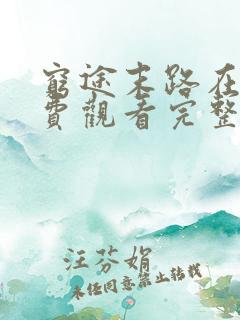 窮途末路在
費觀看完整
汪芬娟
未经同意禁止转载